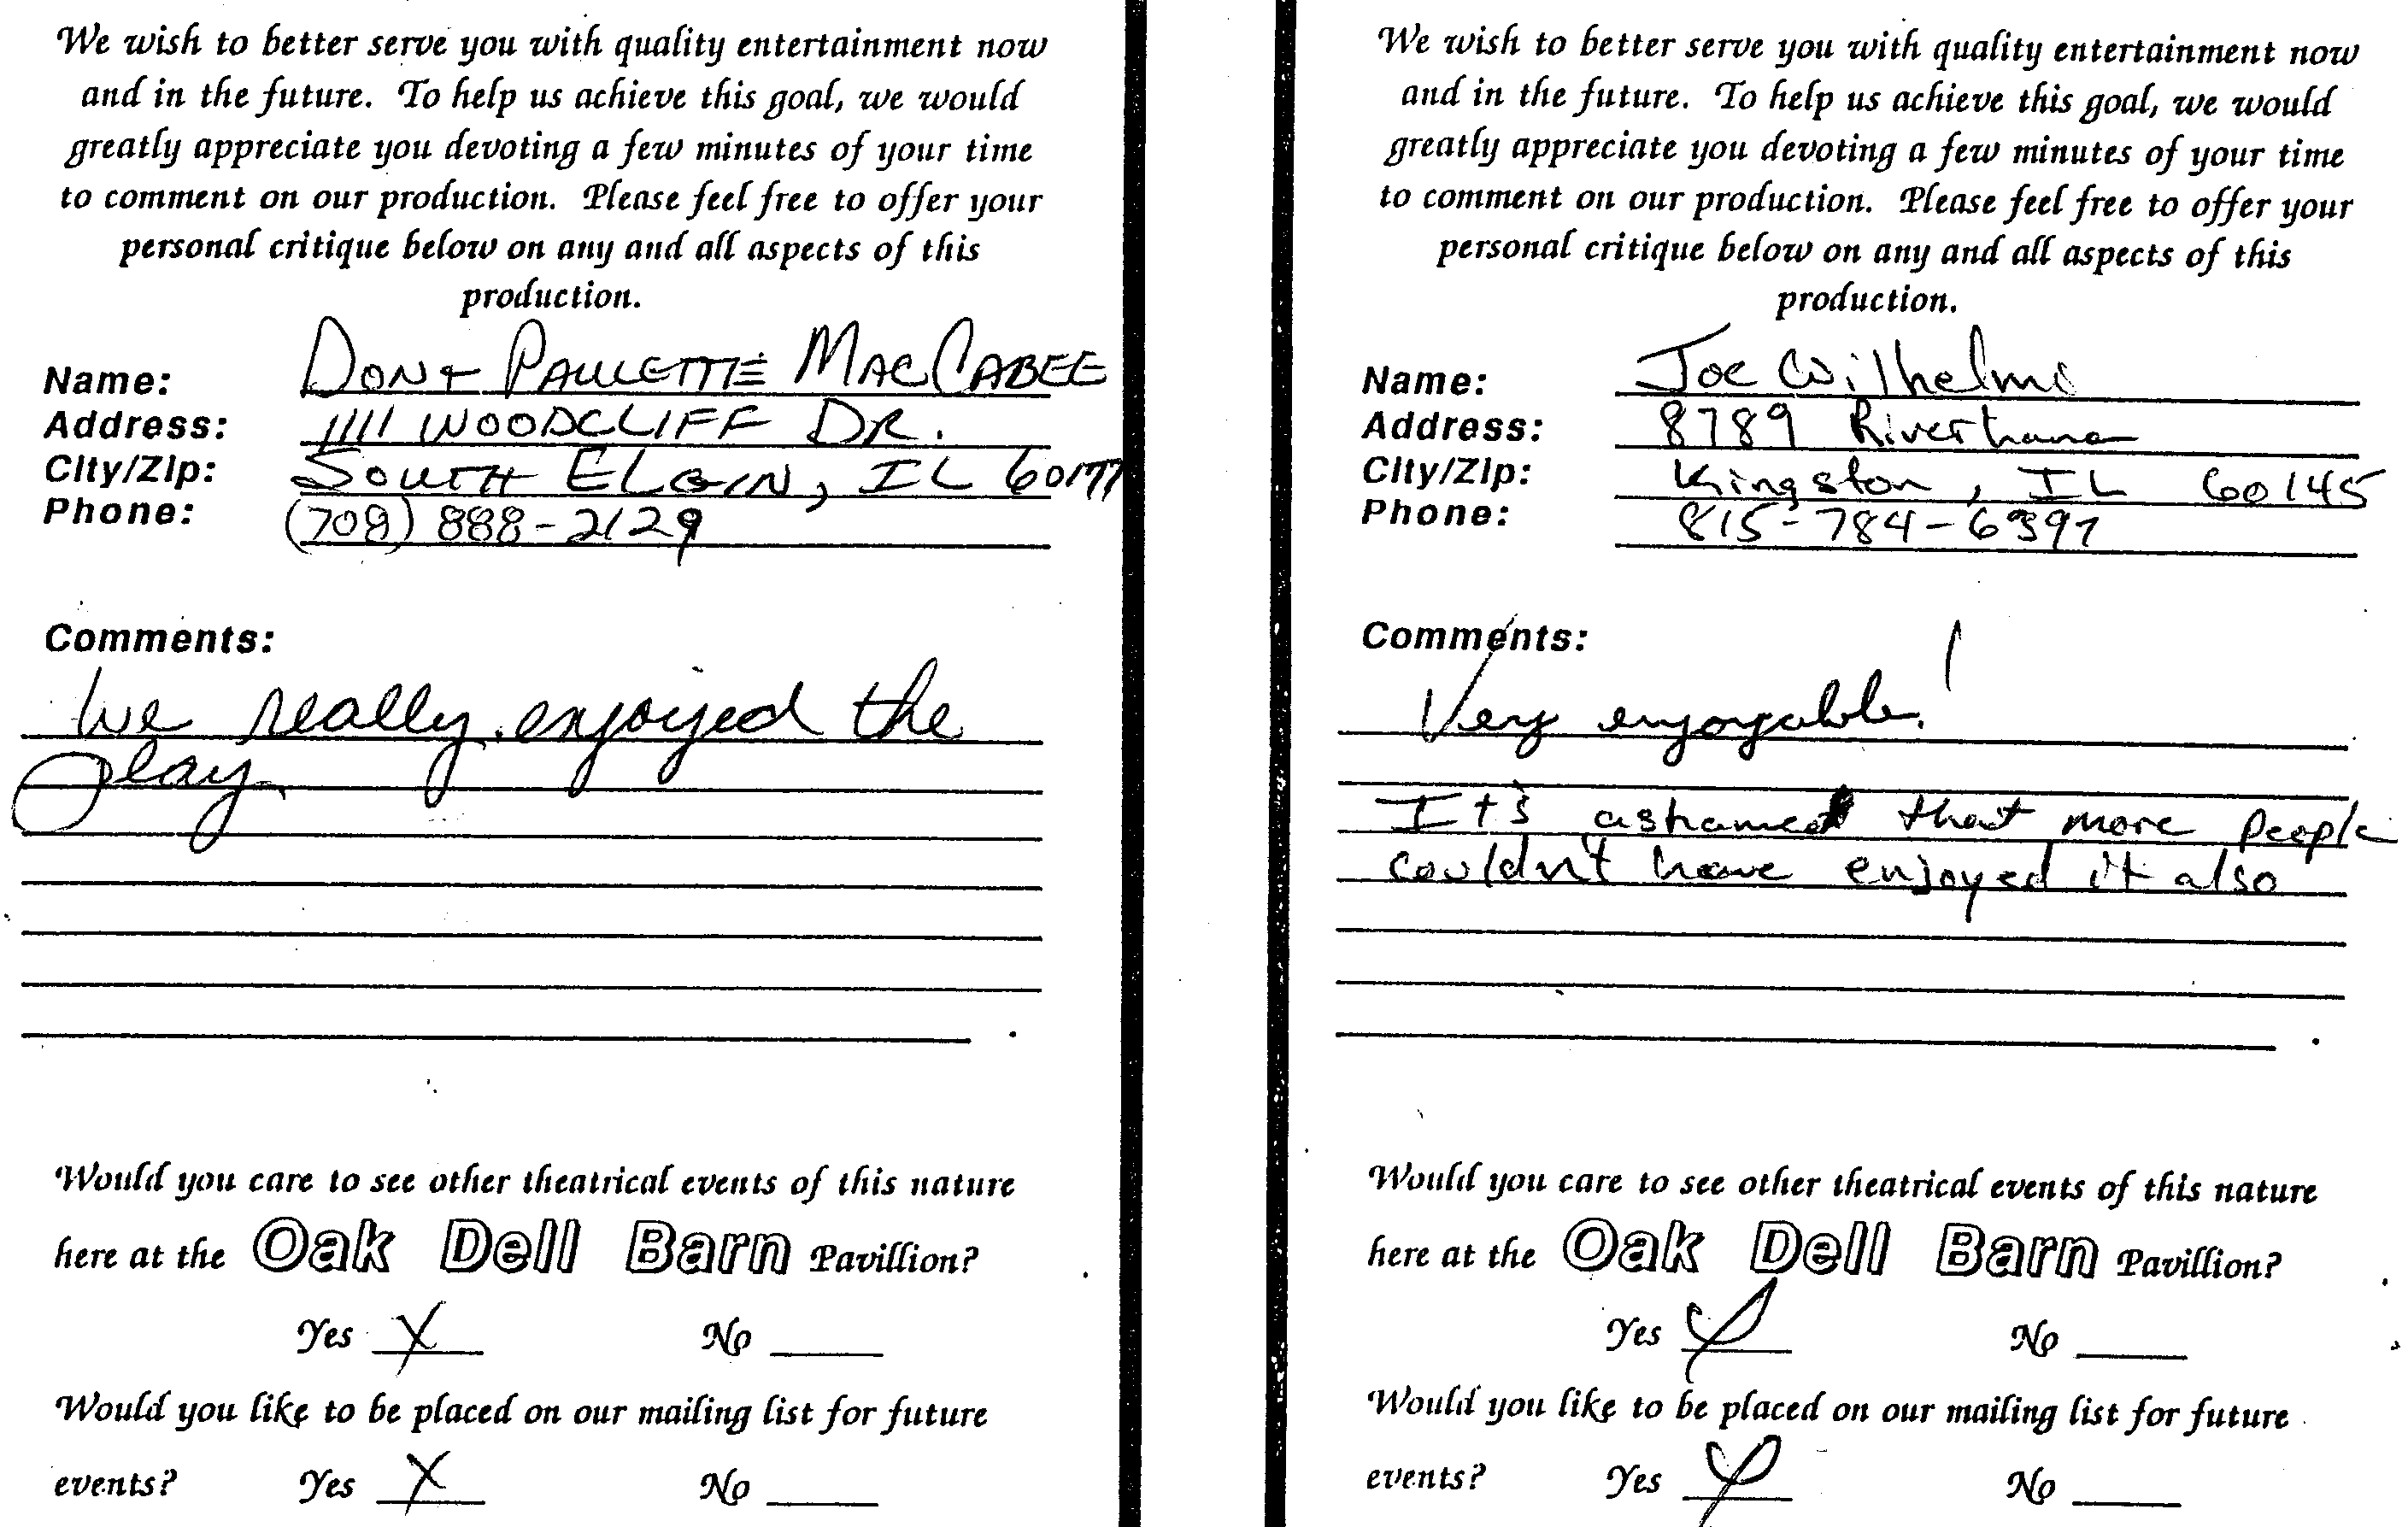 We wish to better serve you with quality entertainment now
and in the future. To help us achieve this goal, we would
greatly appreciate you devoting a few minutes of your time
to comment on our production. Please feel free to offer your
personal critique below on any and all aspects of this
production.
Name: DON & PAULETTE MACCABEE
Address: 1111 WOODCLIFF DR.
City/Zip: SOUTH ELGIN, IL 60177
Phone: (708) 888-2129
Comments:
We really enjoyed the
play
Would you care to see other theatrical events of this nature
here at the Oak Dell Barn Pavillion?
Yes X No
Would you like to be placed on our mailing list for future
events? Yes X No
We wish to better serve you with quality entertainment now
and in the future. To help us achieve this goal, we would
greatly appreciate you devoting a few minutes of your time
to comment on our production. Please feel free to offer your
personal critique below on any and all aspects of this
production.
Name: Joe Wilhelmi
Address: 8789
City/Zip: Kingston, IL 60145
Phone: 815-784-6397
Comments:
Very enjoyable!
It's ashamed that more people
couldn't have enjoyed it also
Would you care to see other theatrical events of this nature
here at the Oak Dell Barn Pavillion?
Yes No
Would you like to be placed on our mailing list for future
events? Yes No